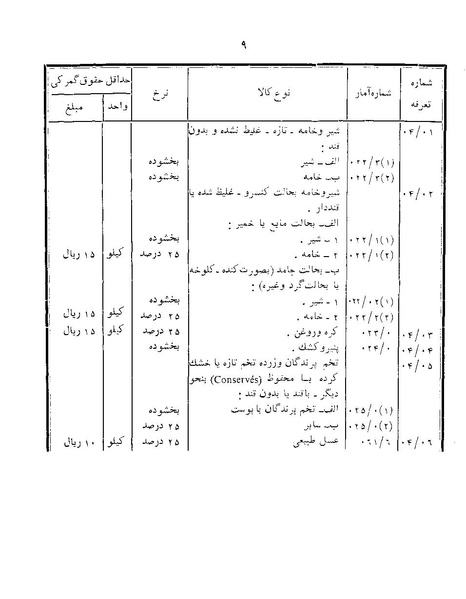 ۹
شماره تعرفه | شماره آمار | نوع کالا | نرخ | حداقل حقوق گمرکی واحد | مبلغ
۰۴/۰۱ شیر وخامه ـ تازه ـ غلیظ نشده و بدون
قند :
۰۲۲/۳(۱) الف ـ شیر بخشوده
۰۲۲/۳(۲) ب ـ خامه بخشوده
۰۴/۰۲ شیر وخامه بحالت کنسرو ـ غلیظ شده یا
قنددار .
الف ـ بحالت مایع یا خمیر :
۰۲۲/۱(۱) ۱ ـ شیر . بخشوده
۰۲۲/۱(۲) ۲ ـ خامه . ۲۵ درصد کیلو ۱۵ ریال
ب ـ بحالت جامد (بصورت کنده ـ کلوخه
یا بحالت گرد وغیره) :
۰۲۲/۰۲(۱) ۱ ـ شیر . بخشوده
۰۲۲/۲(۲) ۲ ـ خامه . ۲۵ درصد کیلو ۱۵ ریال
۰۴/۰۳ ۰۲۳/۰ کره وروغن . ۲۵ درصد کیلو ۱۵ ریال
۰۴/۰۴ ۰۲۴/۰ پنیر وکشک . بخشوده
۰۴/۰۵ تخم پرندگان وزرده تخم تازه یا خشک
کرده یا محفوظ (Conservés) بنحو
دیگر ـ باقند یا بدون قند :
۰۲۵/۰(۱) الف ـ تخم پرندگان با پوست بخشوده
۰۲۵/۰(۲) ب ـ سایر ۲۵ درصد
۰۴/۰۶ ۰۶۱/۶ عسل طبیعی ۲۵ درصد کیلو ۱۰ ریال